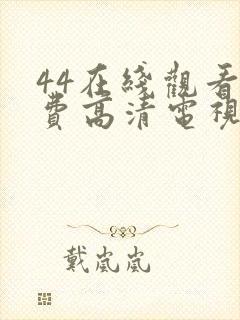 44在綫觀看
費高清電視
戴嵐嵐